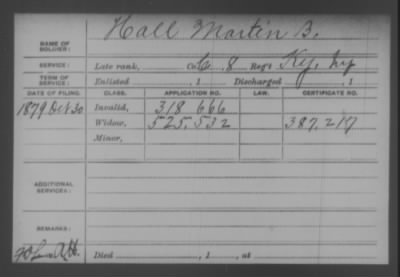 Hall Martin B.
NAME OF SOLDIER:
SERVICE: Late rank, Co. G, 8 Reg't Ky. Inf
TERM OF SERVICE: Enlisted , 1 Discharged , 1
DATE OF FILING. CLASS. APPLICATION NO. LAW. CERTIFICATE NO.
1879 Oct 30 Invalid, 318 666
Widow, 525,532 387,217
Minor,
ADDITIONAL SERVICES:
REMARKS:
Died , 1 , at